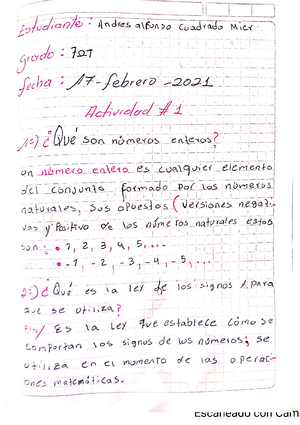 Estudiante: Andres alfonso Cuadrado Mier
grado: 7º1
fecha: 17-febrero-2021
Actividad #1
1=) ¿Qué son números enteros?
un número entero es cualquier elemento
del conjunto formado por los números
naturales, sus opuestos (versiones negati-
vas y Positivo de los números naturales estos
son: • 1, 2, 3, 4, 5, ...
• -1, -2, -3, -4, -5, ...
2=) ¿Qué es la ley de los signos y para
que se utiliza?
R// Es la ley que establece cómo se
comportan los signos de los números; se
utiliza en el momento de las operaci-
ones matemáticas.
Escaneado con Cam